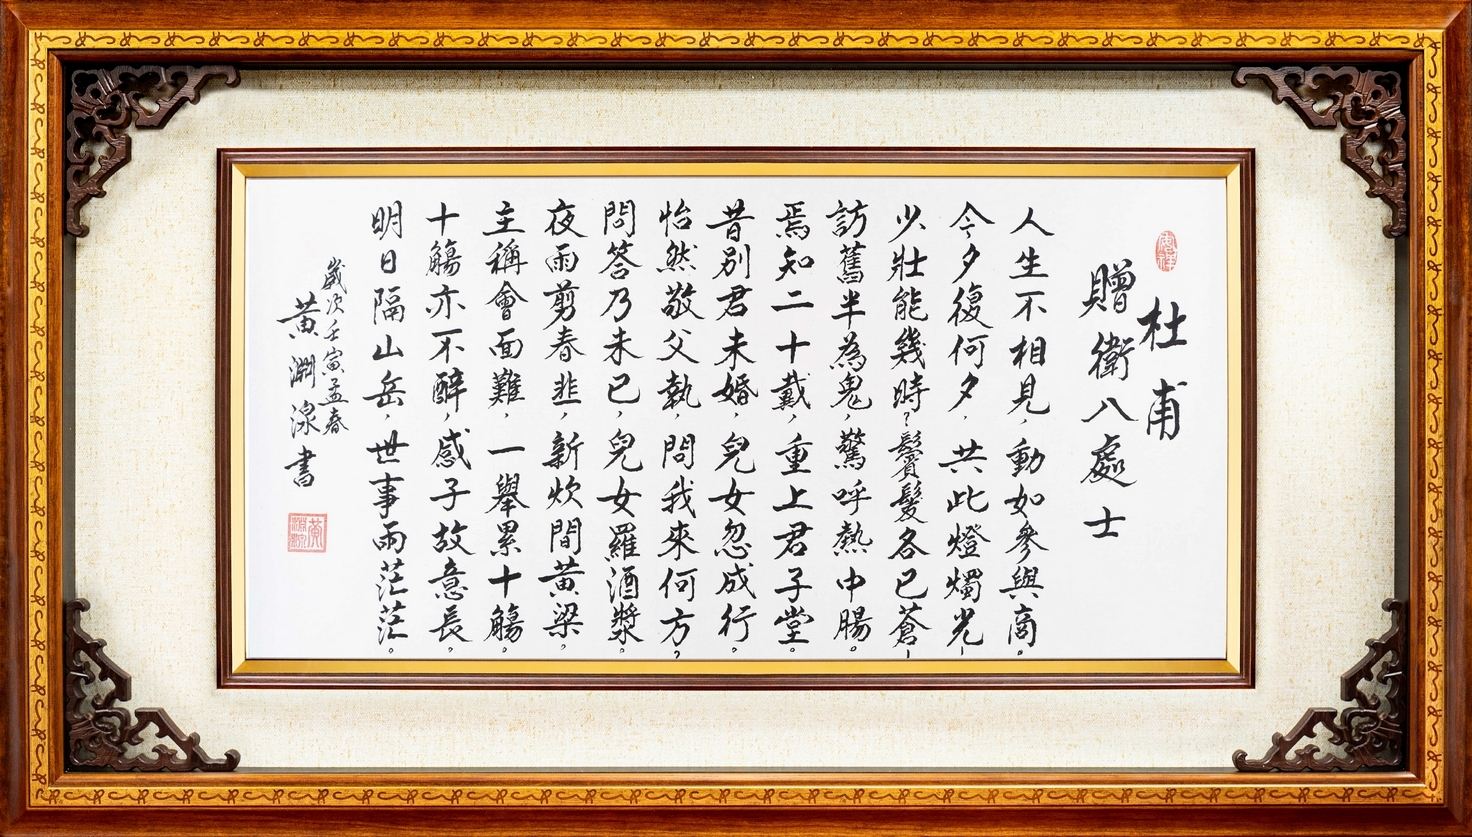 杜甫
贈衛八處士
人生不相見，動如參與商。
今夕復何夕，共此燈燭光！
少壯能幾時？鬢髮各已蒼！
訪舊半為鬼，驚呼熱中腸。
焉知二十載，重上君子堂。
昔別君未婚，兒女忽成行。
怡然敬父執，問我來何方？
問答乃未已，兒女羅酒漿。
夜雨剪春韭，新炊間黃粱，
主稱會面難，一舉累十觴。
十觴亦不醉，感子故意長。
明日隔山岳，世事兩茫茫。
歲次壬寅孟春
黃淵湶書